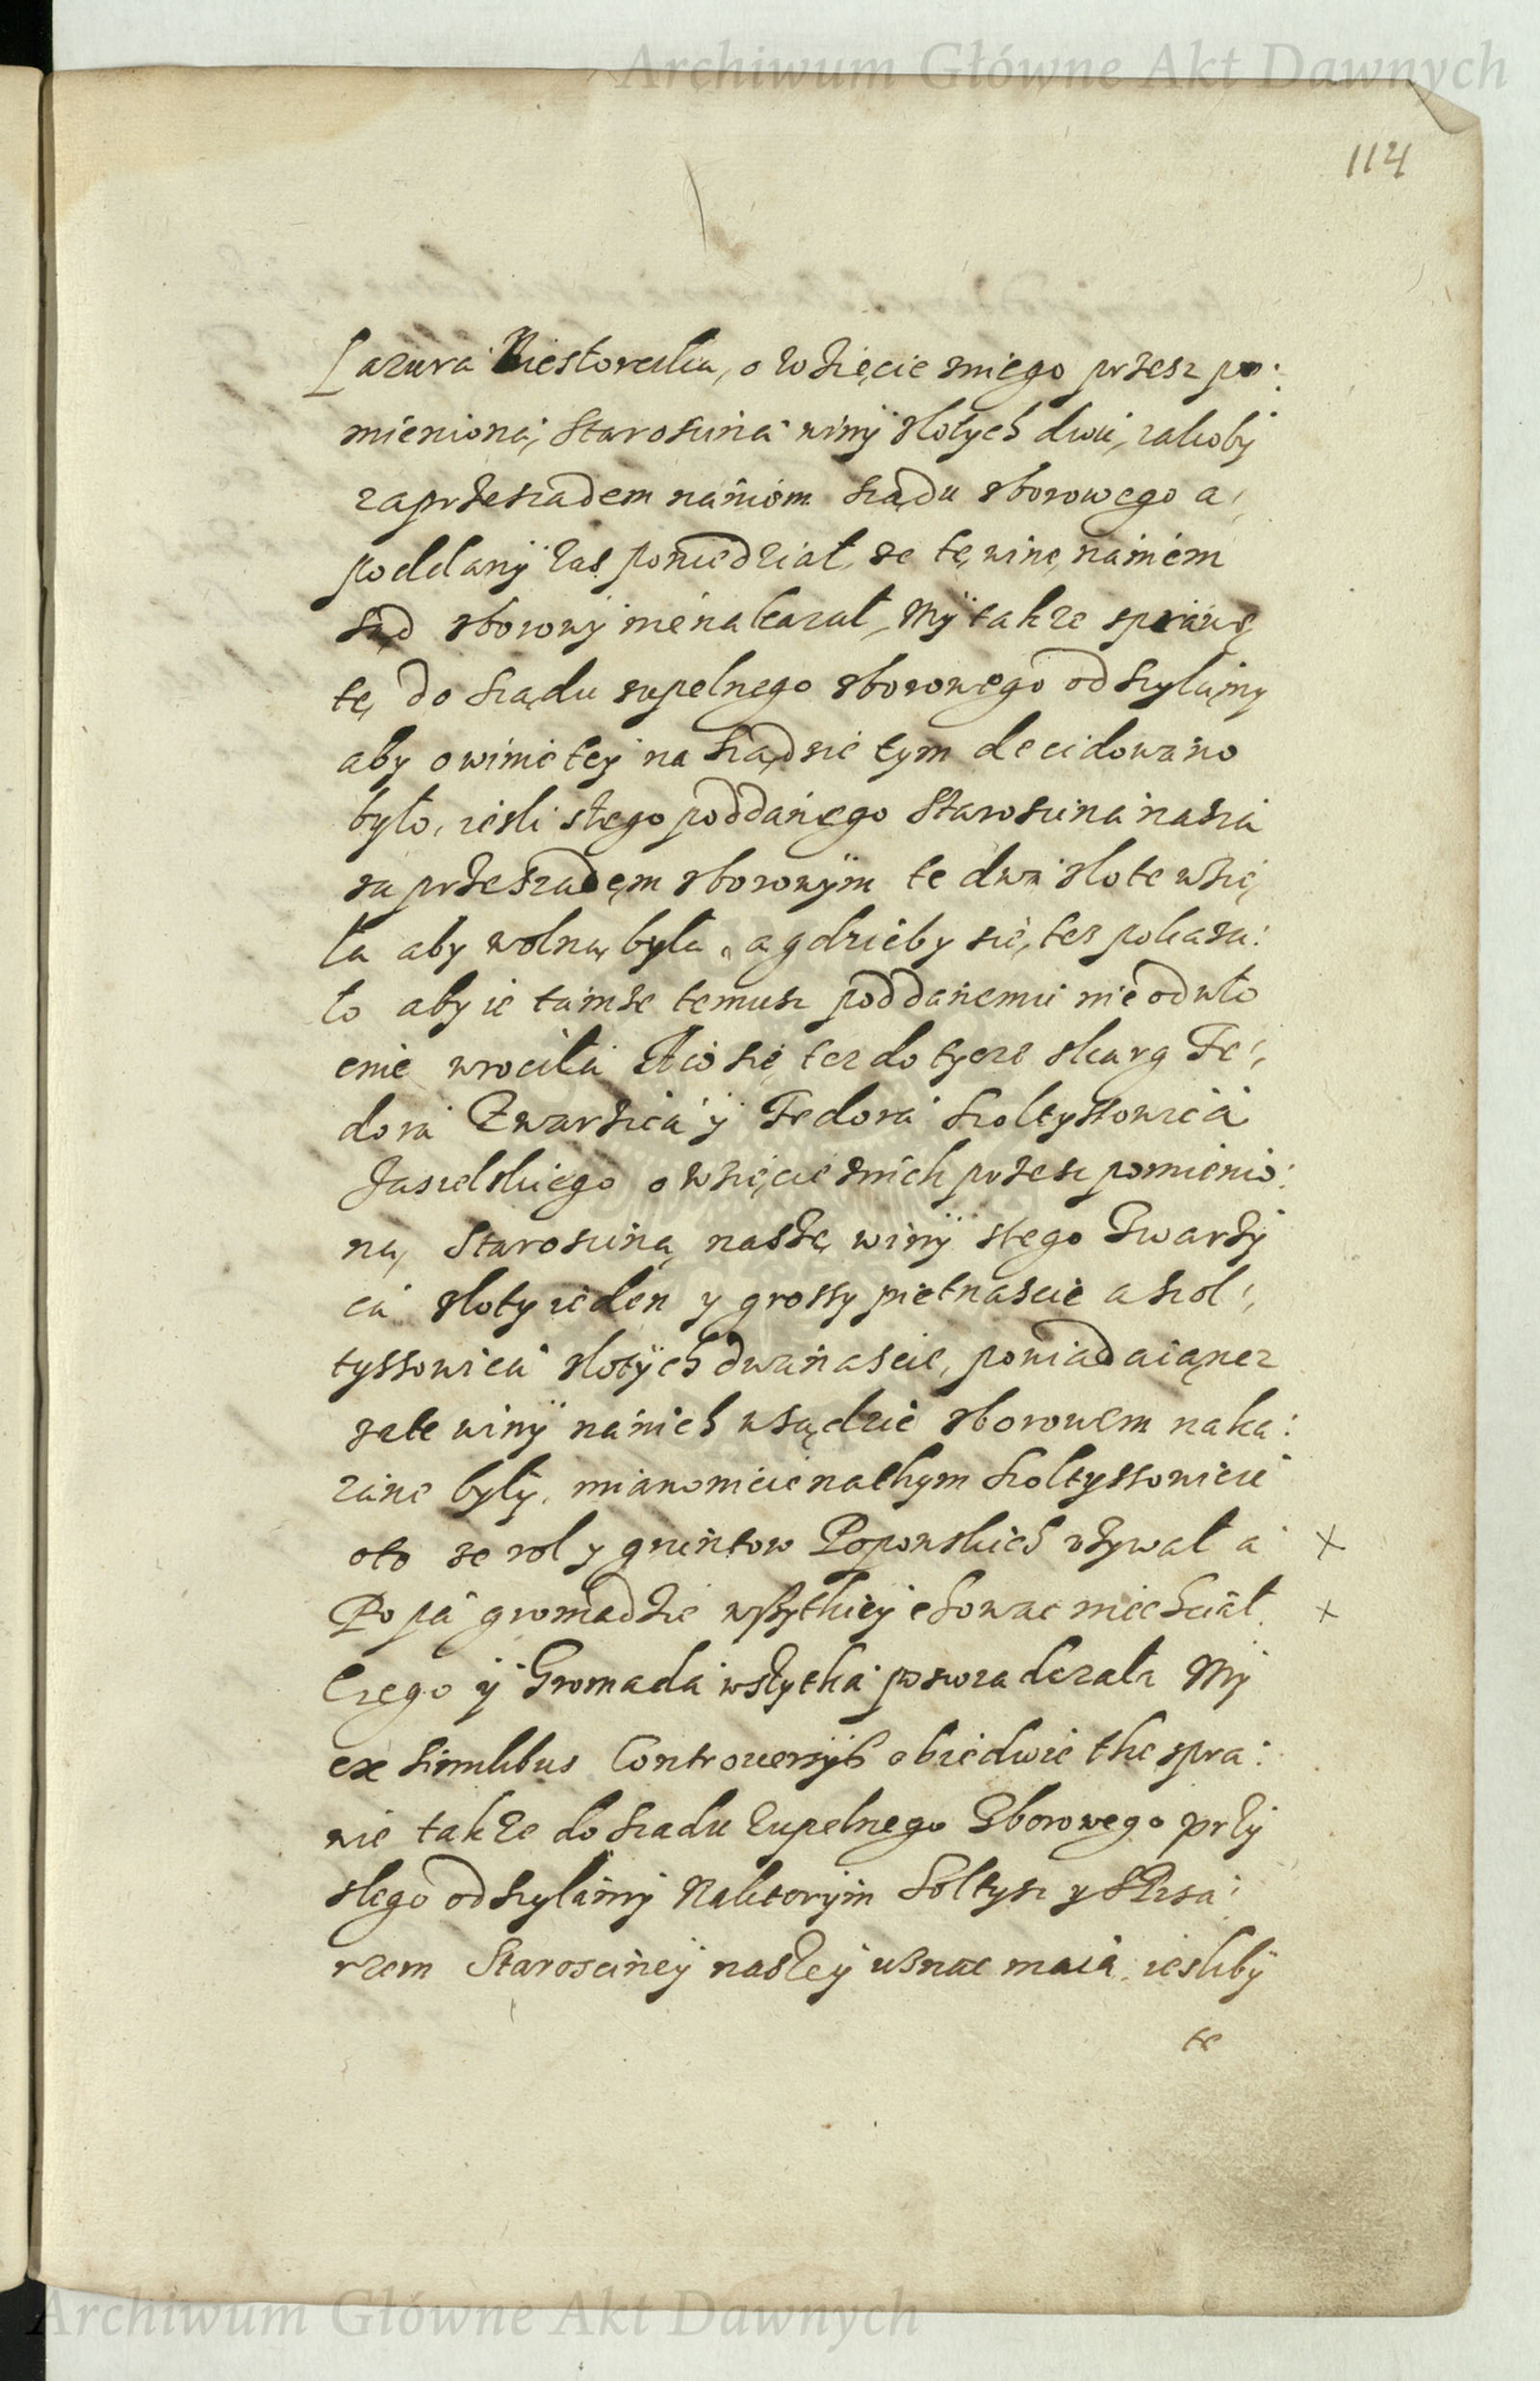 Archiwum Główne Akt Dawnych
114
Lazura Niestorculia, o wzięcie zniego przesz po:
mienioną, Starościną winy złotych dwu, iakoby
zaprzesządem nániom sządu zborowego a,
poddany zas powiedział, ze tę winę náiniem
sąd zborowy nie nakazał, My także sprawę
tę, do sządu zupełnego zborowego odszyłamy
aby owinie tey na sządzie tym decidowano
było, iesli ztego poddanego Starościna nasza
za przesządęm zborowym te dwa złote wzię,
ła aby wolną była, a gdzieby się, tez pokaza:
ło aby ie tamże temusz poddanemu nieodwło
cnie wrociła Aco się tez dotycze skarg Fe:,
dora Zwarzica y Fedora Szołtyssowica
Jasielskiego o wzięcie znich przesz pomienio:
ną, Starościną, naszę winy ztego Zwarzy
ca złoty ieden y grossy piętnascie a szoł:,
tyssowica złotych dwanascie, powiadaiącz
zete winy nánich wsządzie zborowem naka:
zane były, mianowicie nathym Szołtyssowicu
oto ze rol y gruntow Popowskich vzywał a x
Popa gromadzie wszythkiey chowac niechciał x
Czego y Gromada wszytka poswiadczała My
ex similibus Controuersys obiedwie the spra:
wie także do sządu zupełnego Zborowego przy
szłego odszyłamy Naktorym Szołtysz y SPisa:
rzem Starosciney naszey uznac maią, iesliby
te
Archiwum Główne Akt Dawnych